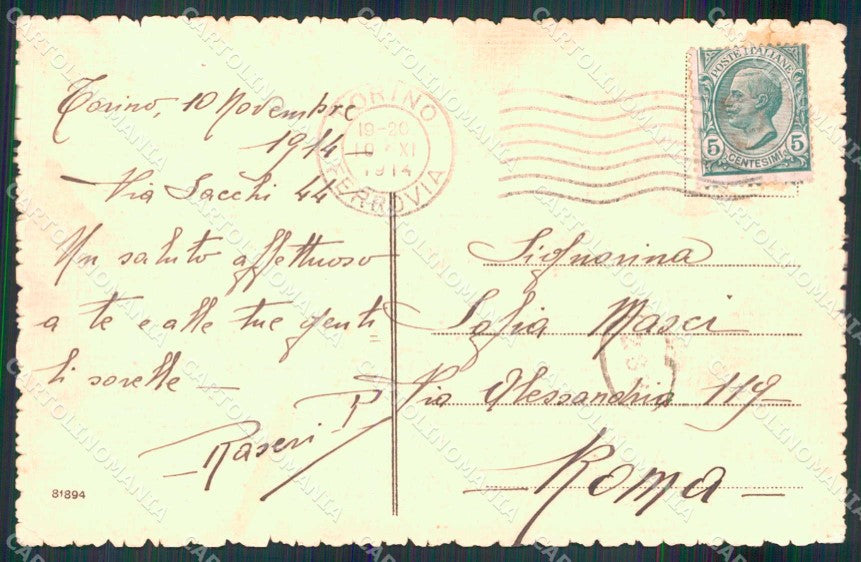 Torino, 10 Novembre
1914 –
Via Sacchi 44
Un saluto affettuoso
a te e alle tue genti
li sorelle –
– Raseri R
81894
TORINO
19-20
10 XI
1914
FERROVIA
POSTE ITALIANE
5 5
CENTESIMI
Signorina
Sofia Masci
Via Alessandria 119
– Roma –
CARTOLINOMANIA